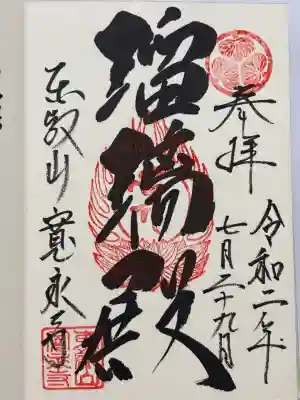 奉拝
令和二年
七月二十九日
瑠璃殿
東叡山寛永寺